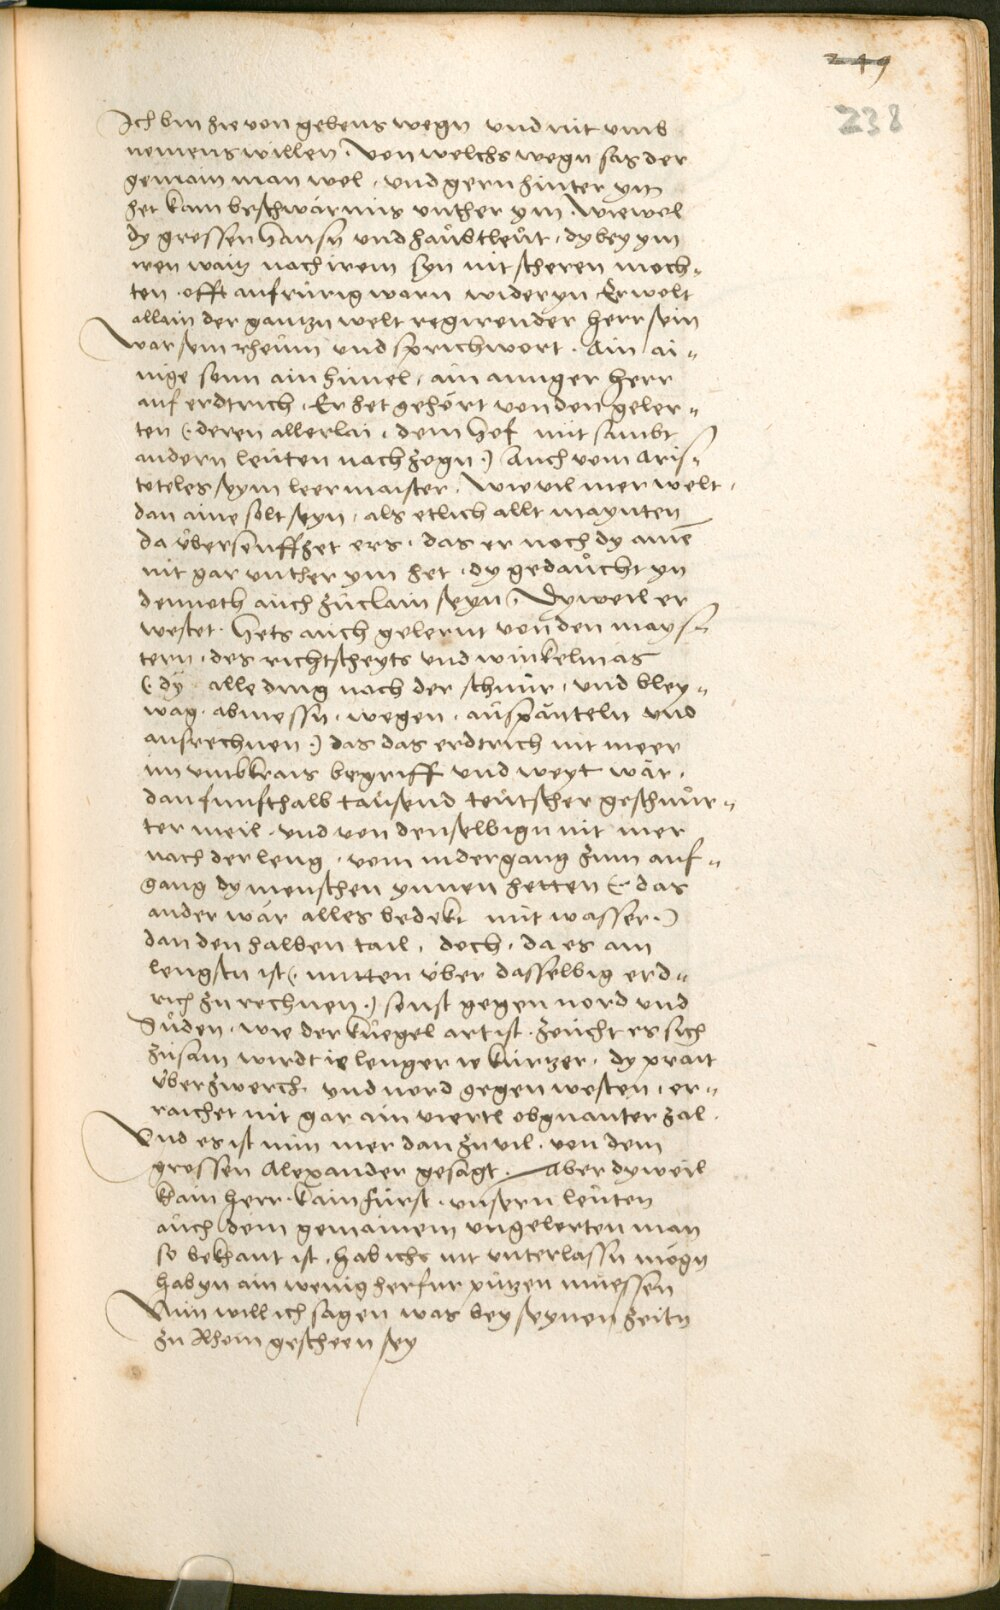 249
238
Ich bin hie von gebens wegn und nit umb
nemens willen. Von welchs wegn sas der
gemain man wol, und gern hinter ym
het kain beschwärnus unther ym. wiewol
dy grossen Hansn und haubtleut, dy bey ym
iren waitz nach irem syn nit scheren moch„
ten. offt aufrürig warn wider yn. Er wolt
allain der gantzn welt regirender herr sein
War sein rheim und sprichwort. Ain ai„
nige sonn ain himel, ain ainiger herr
auf erdtrich. Er het gehört von den geler„
ten (: deren allerlai, dem Hof mit sambt
andern leuten nach zogn:) Auch vom Aris„
toteles seym leermaister. wie vil mer welt,
dan aine solt seyn, als etlich allt maynten
da übersenffzet ers, das er noch dy aine
nit gar unther ym het, dy gedaucht yn
dennoth auch zuclain seyn, Dyweil er
westet. hets auch gelernt von den mays„
tern, des richtscheyts und winkelmas
(: dy alle ding nach der schnur, und bley„
wag. abmessn, wegen, auspänteln und
ausrechnen:) das das erdtrich nit meer
im umbkrais begriff und weyt wär,
dan funfthalb tausend teutscher geschnür„
ter meil, und von denselbign nit mer
nach der leng, vom nidergang zum auf„
gang dy menschen ynnen hetten (: das
ander wär alles bedekt mit wasser:)
dan den halben tail, doch, da es am
lengstn ist (: mitten über dasselbig erd„
rich zu rechnen:) sonst gegen nord und
Suden, wie der kuegel art ist, zeucht es sich
zusam wirdt ie lenger ie kurtzer, dy prait
überzwerch und nord gegen westen, er„
raichet nit gar ain viertl obgnanter zal.
Und es ist nun mer dan zuvil, von dem
grossen Alexander gesagt. Aber dyweil
kain herr. kain fürst, unsern leuten
auch dem gemainem ungelerten man
so bekhant ist, hab ichs nit unterlassn mögn
hab yn ain wenig herfur putzen muessen
Nun will ich sagen was bey seynen zeitn
zu Rhom gescheen sey